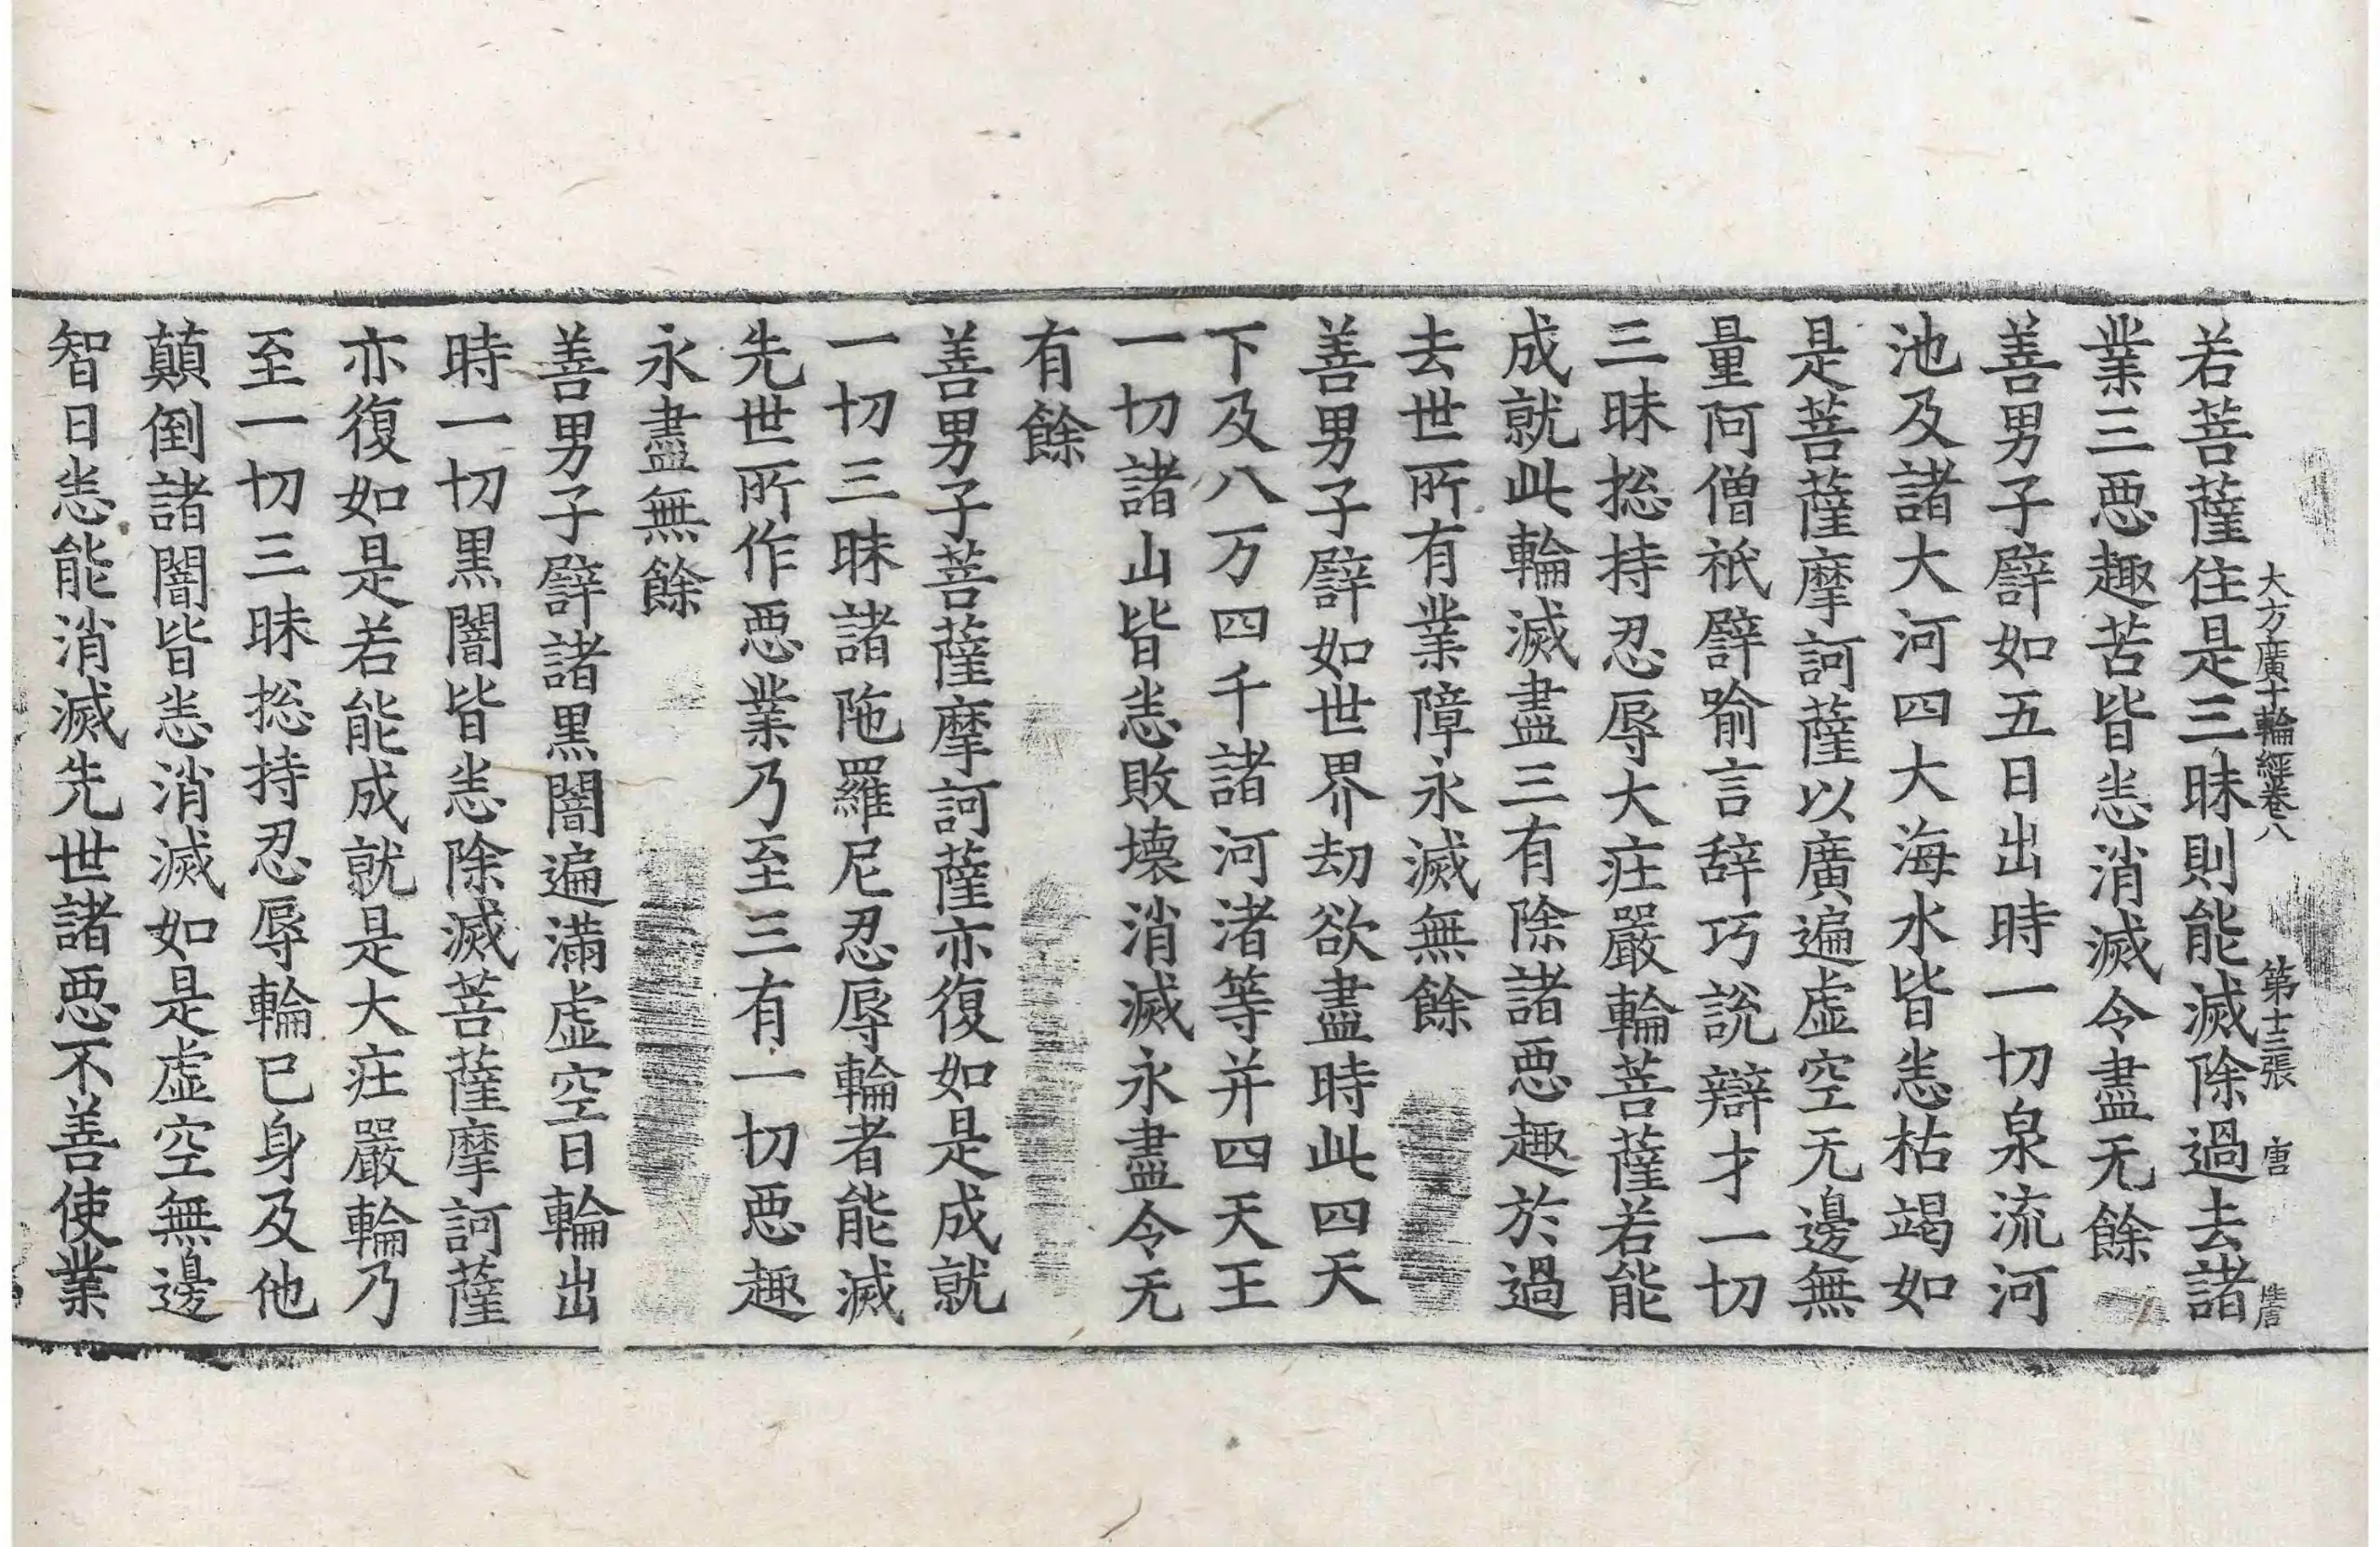 大方廣十輪經卷八 第十三張 唐
若菩薩住是三昧則能滅除過去諸
業三惡趣苦皆悉消滅令盡无餘
善男子譬如五日出時一切泉流河
池及諸大河四大海水皆悉枯竭如
是菩薩摩訶薩以廣遍虛空无邊無
量阿僧祇譬喻言辝巧說辯才一切
三昧捴持忍辱大庄嚴輪菩薩若能
成就此輪滅盡三有除諸惡趣於過
去世所有業障永滅無餘
善男子譬如世界劫欲盡時此四天
下及八万四千諸河渚等并四天王
一切諸山皆悉敗壞消滅永盡令无
有餘
善男子菩薩摩訶薩亦復如是成就
一切三昧諸陁羅尼忍辱輪者能滅
先世所作惡業乃至三有一切惡趣
永盡無餘
善男子譬諸黑闇遍滿虛空日輪出
時一切黑闇皆悉除滅菩薩摩訶薩
亦復如是若能成就是大庄嚴輪乃
至一切三昧捴持忍辱輪已身及他
顛倒諸闇皆悉消滅如是虛空無邊
智日悉能消滅先世諸惡不善使業